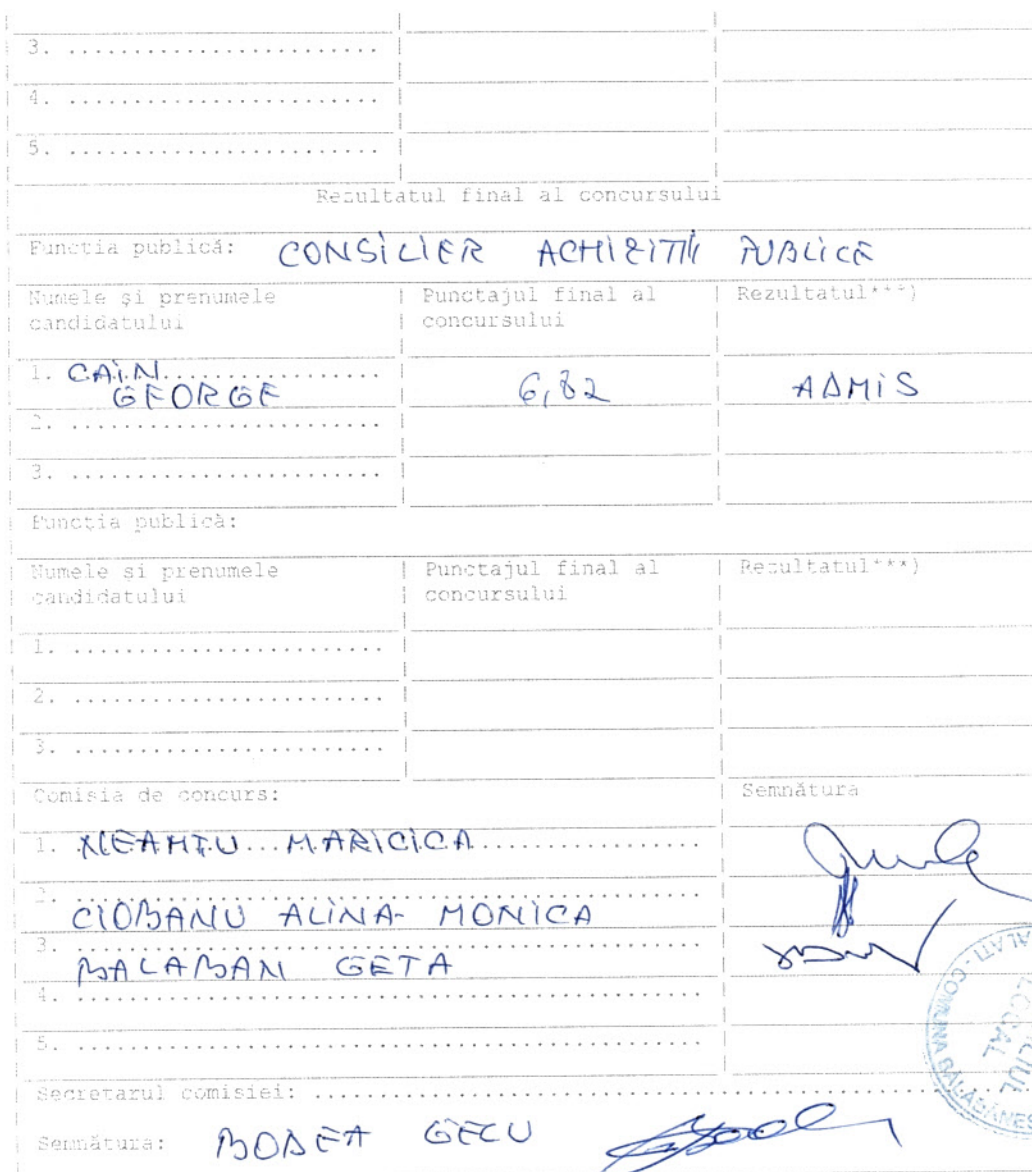 3. ........................
4. ........................
5. ........................
Rezultatul final al concursului
Funcția publică: CONSILIER ACHIZITII PUBLICE
Numele și prenumele candidatului | Punctajul final al concursului | Rezultatul***)
1. CAIN GEORGE | 6,82 | ADMIS
2. ........................
3. ........................
Funcția publică:
Numele și prenumele candidatului | Punctajul final al concursului | Rezultatul***)
1. ........................
2. ........................
3. ........................
Comisia de concurs: | Semnătura
1. NEAMȚU MARICICA
2. CIOBANU ALINA-MONICA
3. BALABAN GETA
4. ........................
5. ........................
Secretarul comisiei: ........................
Semnătura: BODEA GECU
COMUNA BĂLĂBĂNEȘ
LOCAL